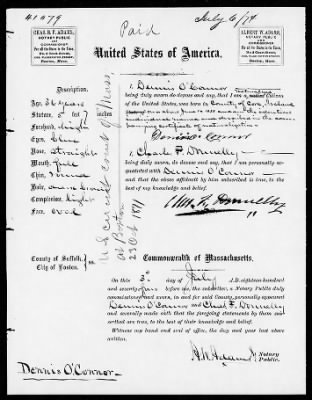 41079
Paid
July 6/74
CHAS. B. F. ADAMS,
NOTARY PUBLIC
AND
COMMISSIONER
For all the States in the Union,
Boston, Mass.
ALBERT W. ADAMS,
NOTARY PUBLIC
AND
COMMISSIONER
For all the States in the Union,
Boston, Mass.
United States of America.
Description.
Age, 36 years
Stature, 5 feet 7 inches
Forehead, height
Eyes, Blue
Nose, straight
Mouth, full
Chin, round
Hair,
Complexion, light
Face, oval
U S circuit court of Mass.
at Boston
23 Oct 1871
I, Dennis O'Connor
being duly sworn do depose and say, that I am a naturalized Citizen
of the United States, was born in County of Cork, Ireland
Dennis O'Connor
I, Charles F. Donnelly
being duly sworn, do depose and say, that I am personally ac-
quainted with Dennis O'Connor
and that the above affidavit by him subscribed is true, to the
best of my knowledge and belief.
Chas. F. Donnelly
County of Suffolk, } ss.
City of Boston.
Commonwealth of Massachusetts.
On this 3d day of July A.D. eighteen hundred
and seventy four before me, the subscriber, a Notary Public duly
commissioned and sworn, in and for said County personally appeared
Dennis O'Connor and Chas F. Donnelly
and severally made oath that the foregoing statements by them sub-
scribed are true, to the best of their knowledge and belief.
Witness my hand and seal of office, the day and year last above
written.
A W Adams Notary
Public.
Dennis O'Connor